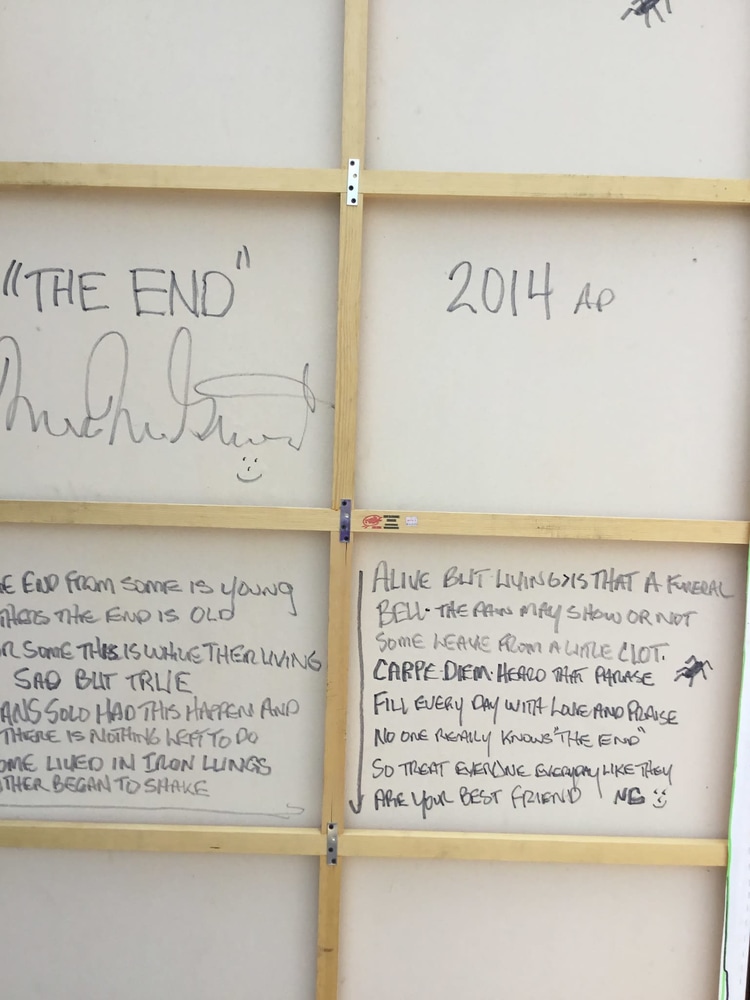 "THE END"
2014 AP
E END FROM SOME IS YOUNG
THERS THE END IS OLD
R SOME THIS IS WHILE THER LIVING
SAD BUT TRUE
ANS SOLO HAD THIS HAPPEN AND
THERE IS NOTHING LEFT TO DO
OME LIVED IN IRON LUNGS
THER BEGAN TO SHAKE
ALIVE BUT LIVING>IS THAT A FUNERAL
BELL. THE PAIN MAY SHOW OR NOT
SOME LEAVE FROM A LITTLE CLOT.
CARPE DIEM. HEARD THAT PHRASE
FILL EVERY DAY WITH LOVE AND PRAISE
NO ONE REALLY KNOWS "THE END"
SO TREAT EVERYONE EVERYDAY LIKE THEY
ARE YOUR BEST FRIEND NG